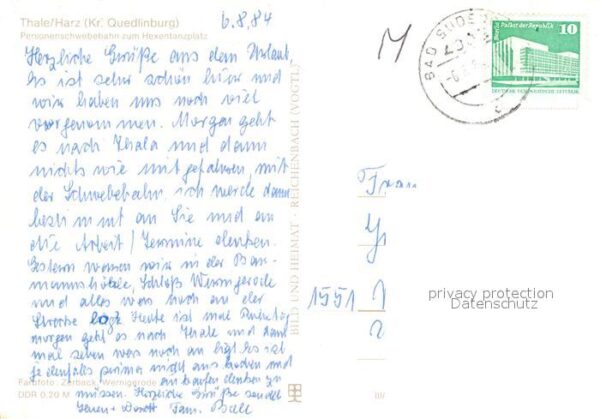 Thale/Harz (Kr. Quedlinburg)
6.8.84
Personenschwebebahn zum Hexentanzplatz
Herzliche Grüße aus dem Urlaub,
es ist sehr schön hier und
wir haben uns noch viel
vorgenommen. Morgen geht
es nach Thale und dann
nichts wie mit gefahren, mit
der Schwebebahn, ich werde dann
bestimmt an Sie und an
die Arbeit / Termine denken.
Gestern waren wir in der Bau-
mannshöhle, Schloß Wernigerode
und alles was noch an der
Strecke liegt. Heute ist mal Ruhetag
morgen geht es nach Thale und dann
mal sehen was noch an liegt. Es ist
jedenfalls prima nicht ans kochen und
an kaufen denken zu
müssen. Herzliche Grüße sendet
Ihnen Fam.
Farbfoto: Zerback, Wernigerode
DDR 0,20 M
BILD UND HEIMAT · REICHENBACH (VOGTL)
M
BAD SUDER
Berlin, Palast der Republik
10
DEUTSCHE DEMOKRATISCHE REPUBLIK
Frau
1551
privacy protection
Datenschutz